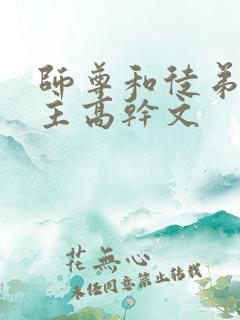 師尊和徒弟
主高幹文
花無心
未經同意禁止轉載